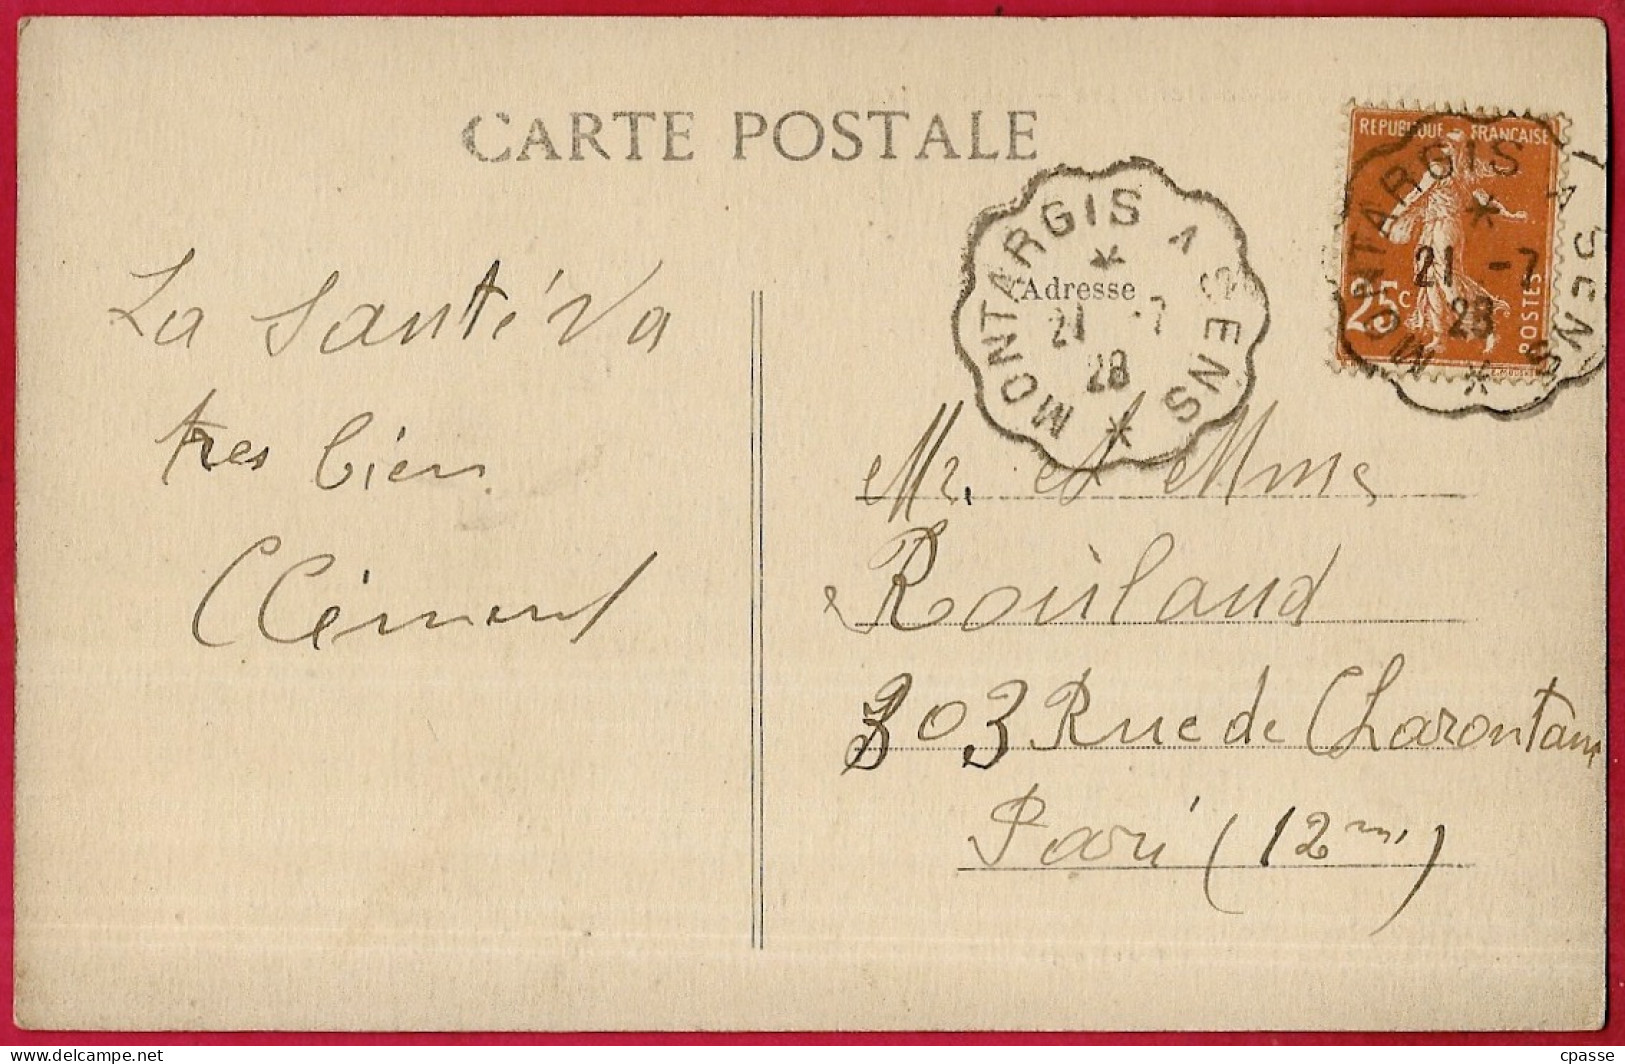 CARTE POSTALE
REPUBLIQUE FRANÇAISE
25c
POSTES
MONTARGIS A SENS
21 -7
28
MONTARGIS A SENS
Adresse
21 -7
28
La santé va
tres bien
Clément
Mr. et Mme
Rouland
303 Rue de Charontam
Pari (12me)
delcampe.net
cpasse